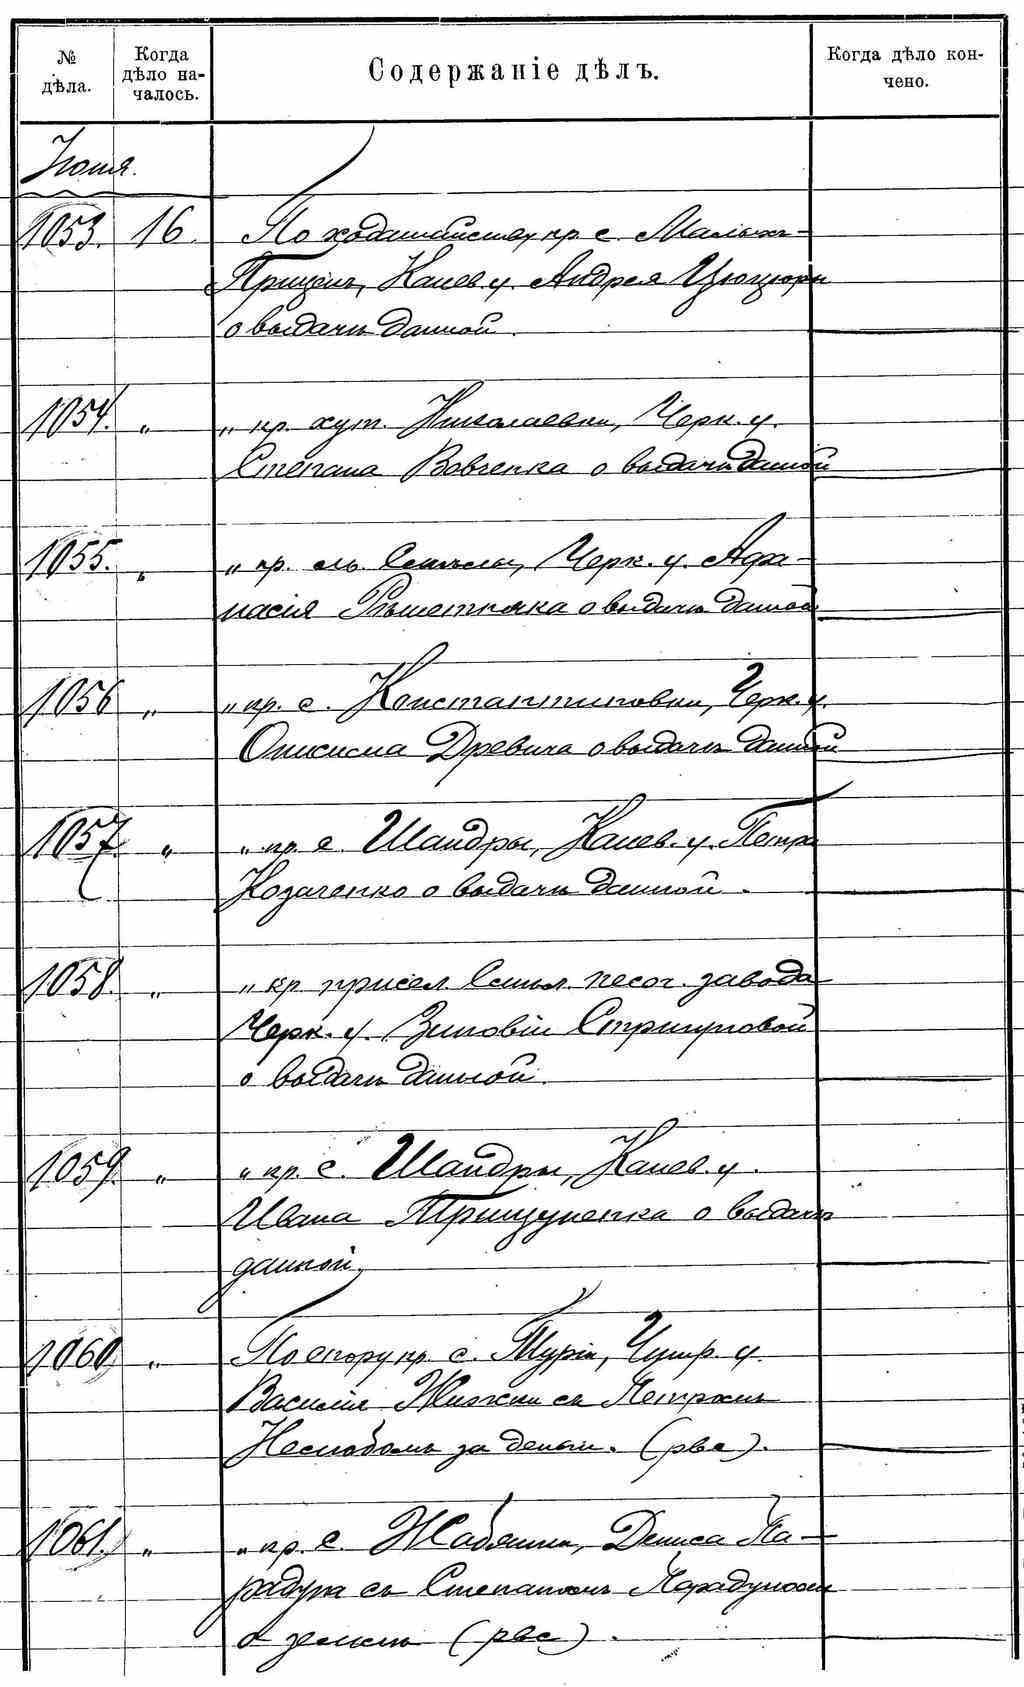 №
дѣла.
Когда
дѣло на-
чалось.
Содержаніе дѣлъ.
Когда дѣло кон-
чено.
Іюня.
1053. 16. По ходатайству кр. с. Малыхъ-
Прицекъ, Канев. у. Андрея
о выдачѣ данной.
1054. „ „ кр. хут. Николаевки, Черк. у.
Степана Вовченка о выдачѣ данной
1055. „ „ кр. Смѣлы, Черк. у. Афа-
насія Рѣшетняка о выдачѣ данной
1056 „ „ кр. с. Константиновки, Черк. у.
Онисима Древича о выдачѣ данной
1057. „ „ кр. с. Шандры, Канев. у. Петра
Козаченко о выдачѣ данной.
1058. „ „ кр. присел. Смѣл. песоч. завода
Черк. у. Зиновіи Стригуновой
о выдачѣ данной.
1059. „ „ кр. с. Шандры, Канев. у.
Ивана Трищуненка о выдачѣ
данной.
1060. „ По спору кр. с. Туріи, Чигир. у.
Василія съ Петромъ
за деньги. (рвс).
1061. „ „ кр. с. Жабянки, Дениса Па-
радуна съ Степаномъ Парадуномъ
о землѣ (рвс).